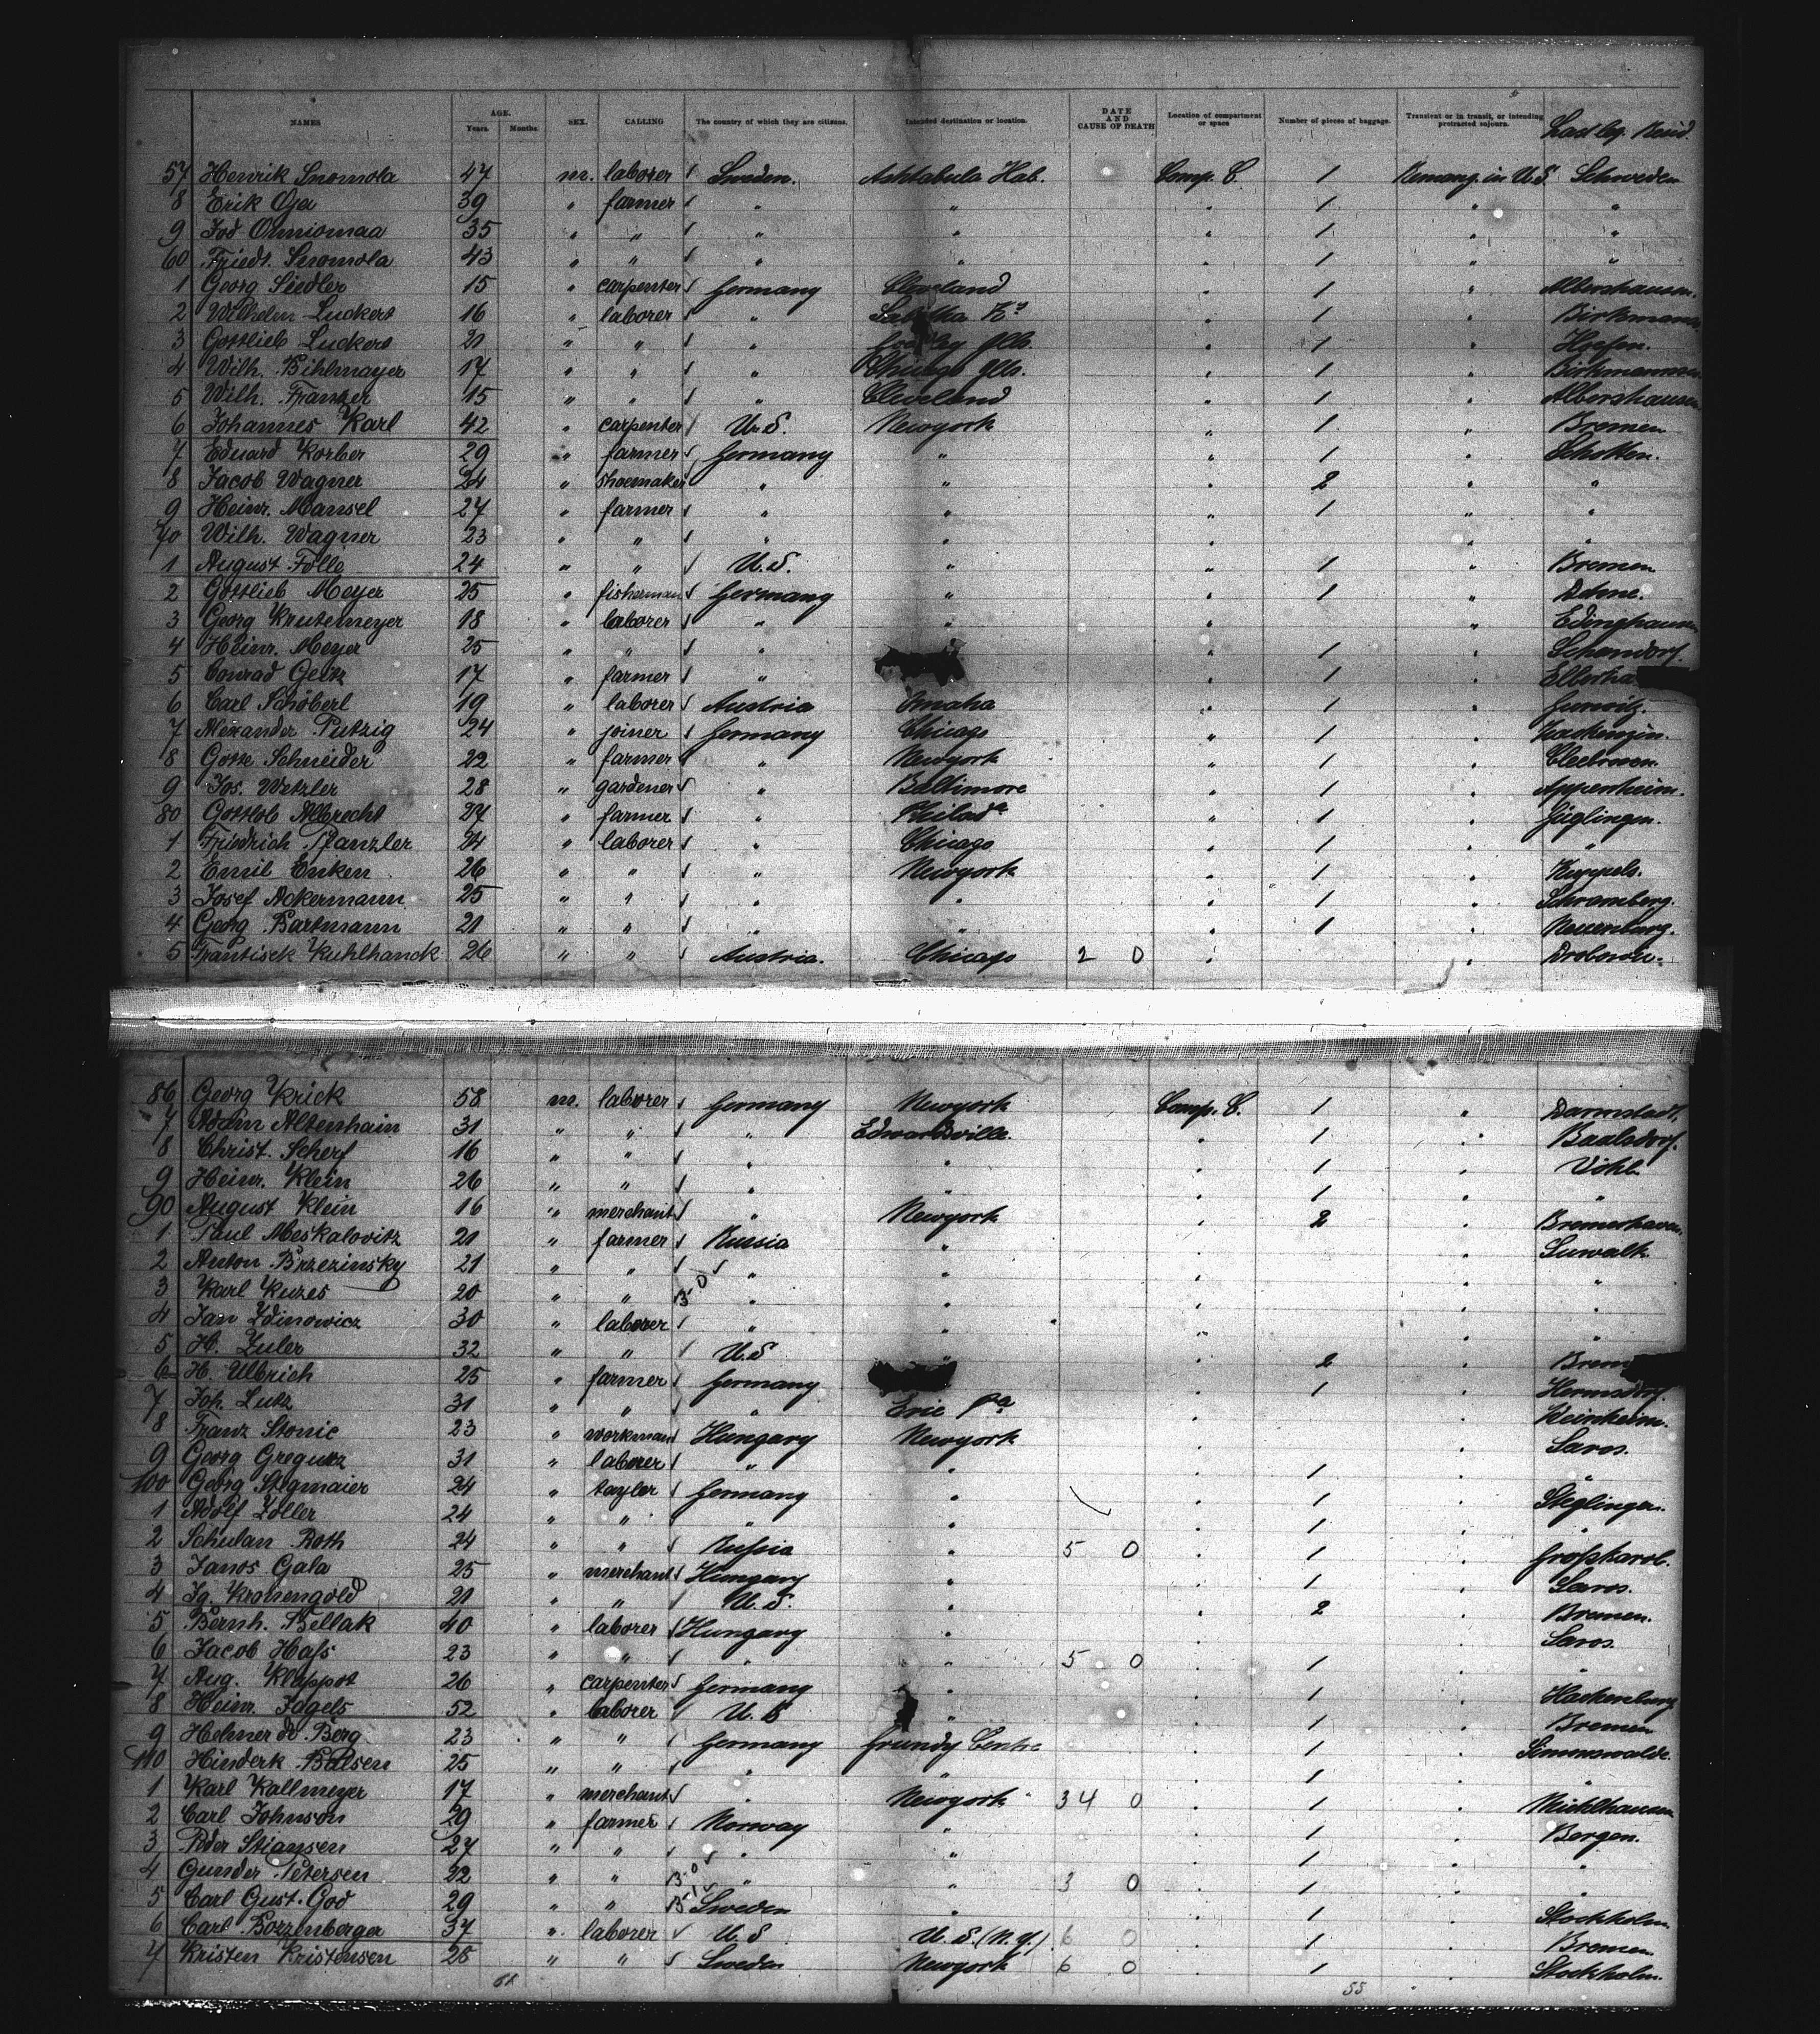 NAMES AGE. Years. Months. SEX. CALLING The country of which they are citizens. Intended destination or location. DATE AND CAUSE OF DEATH Location of compartment or space Number of pieces of baggage. Transient or in transit, or intending protracted sojourn. Last leg. Resid.
57 Henrik Snomola 47 m. laborer Sweden. Ashtabula Hab. Comp. C. 1 Remang. in U.S. Schweden
8 Erik Oja 39 " farmer " " " 1 " "
9 35 " " " " " 1 " "
60 Friedr. Snomola 43 " " " " " 1 " "
1 Georg Siedler 15 " carpenter Germany Cleveland " 1 " Albershausen.
2 Wilhelm Luckert 16 " laborer " " 1 "
3 Gottlieb Luckert 21 " " " Ills. " 1 "
4 Wilh. Bihlmayer 17 " " " Chicago Ills. " 1 "
5 Wilh. Franzer 15 " " " Cleveland " 1 " Albershausen
6 Johannes Karl 42 " carpenter U.S. Newyork " 1 " Bremen
7 Eduard Korber 29 " farmer Germany " " 1 " Schotten.
8 Jacob Wagner 24 " shoemaker " " " 2 " "
9 Heinr. Mansel 27 " farmer " " " 1 " "
70 Wilh. Wagner 23 " " " " " " "
1 August Folle 24 " " U.S. " " 1 " Bremen
2 Gottlieb Meyer 25 " fisherman Germany " " 1 " Dehme.
3 Georg Krutemeyer 18 " laborer " " " " Edinghausen
4 Heinr. Meyer 25 " " " " 1 "
5 Conrad Geitz 17 " farmer " " 1 "
6 Carl Schöberl 19 " laborer Austria Omaha " 1 "
7 Alexander Putzig 24 " joiner Germany Chicago " 1 " Zackenzin.
8 Gotte Schneider 22 " farmer " Newyork " 1 "
9 Jos. Wetzler 28 " gardener " Baltimore " 1 " Appenheim.
80 Gottlob Albrecht 27 " farmer " Philada " 1 " Güglingen.
1 Friedrich Pfanzler 24 " laborer " Chicago " 1 " "
2 Emil Enken 26 " " " Newyork " 1 "
3 Josef Ackermann 25 " " " " " 1 " Schramberg.
4 Georg Bartmann 21 " " " " " 1 " Neuenburg.
5 Frantisek Kuhlhanek 26 " " Austria. Chicago 2 0 " "
86 Georg Krick 58 m. laborer Germany Newyork Comp. C. 1 " Darmstadt.
7 Adam Altenhain 31 " " " Edwardsville. " 1 " Baalsdorf.
8 Christ. Scherf 16 " " " " " 1 " Vöhl.
9 Heinr. Klein 26 " " " " " 1 " "
90 August Klein 16 " merchant " Newyork " 2 " Bremerhaven.
1 Paul Meskalovitz 21 " farmer Russia " " " Suwalk.
2 Anton Brzezinsky 21 " " " " " " "
3 Karl Kuzes 20 " " " " " " "
4 Jan Zdinowicz 30 " laborer " " " " "
5 H. Zuler 32 " " U.S " 2 " Brem
6 H. Ulbrich 25 " farmer Germany " 1 " Hermsdorf.
7 Joh. Lutz 31 " " " Erie Pa " " Weinheim.
8 Franz Stonic 23 " workman Hungary Newyork " " Saros.
9 Georg Greguzz 31 " laborer " " " 1 " "
100 Georg Stegmaier 24 " tayler Germany " " 1 "
1 Adolf Zoller 24 " " " " " 1 " "
2 Schulan Roth 24 " " Russia " 5 0 " 1 " Grosskarol.
3 Janos Gala 25 " merchant Hungary " " 1 " Saros.
4 Ig. Kronengold 21 " " U.S. " " 2 " Bremen.
5 Bernh. Bellak 40 " laborer Hungary " " " Saros.
6 Jacob Hass 23 " " " " 5 0 " 1 " "
7 Aug. Klappot 26 " carpenter Germany " " 1 " Hackenburg
8 Heinr. Jagels 52 " laborer U.S " " 1 " Bremen
9 Helmer de Berg 23 " " Germany Grundy Centre " 1 " Simonswalde.
110 Hinderk Balsen 25 " " " " " 1 " "
1 Karl Kallmeyer 17 " merchant " Newyork 34 0 " 1 "
2 Carl Johnson 29 " farmer Norway " " 1 " Bergen.
3 Peder Stiansen 27 " " " " " 1 " "
4 Gunder Petersen 22 " " " " 3 0 " 1 " "
5 Carl Gust. God 29 " " Sweden " " 1 " Stockholm
6 Carl Borzenberger 37 " laborer U.S U.S. (N.Y.) 6 0 " 1 " Bremen
7 Kristen Kristensen 28 " " Sweden Newyork 6 0 " 1 " Stockholm.
55